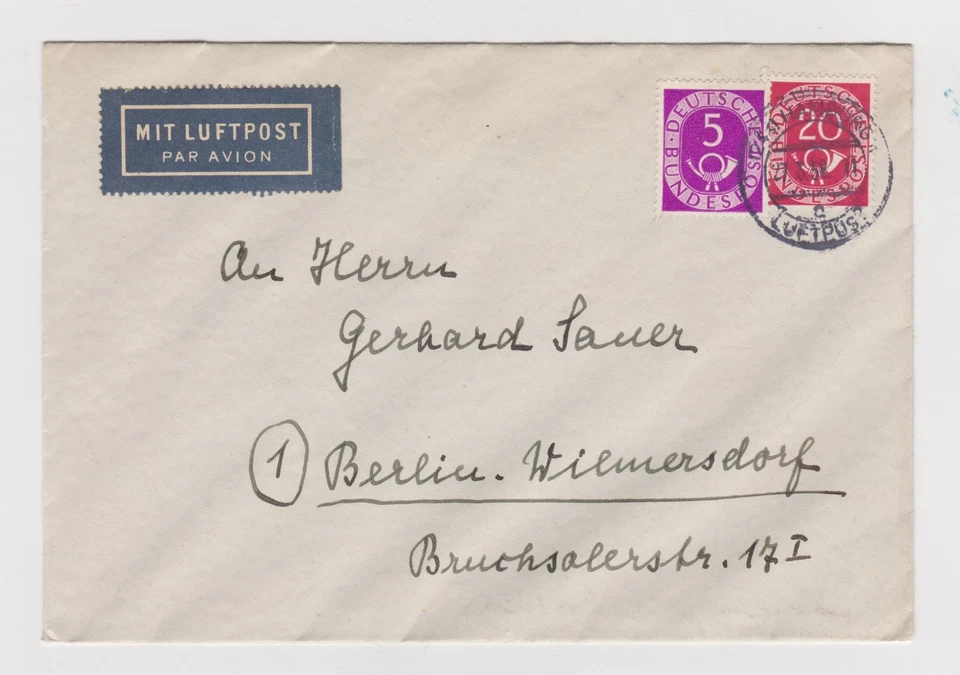 MIT LUFTPOST
PAR AVION
5
DEUTSCHE BUNDESPOST
20
DEUTSCHE BUNDESPOST
LUFTPOST
An Herrn
Gerhard Sauer
1 Berlin-Wilmersdorf
Bruchsalerstr. 17 I